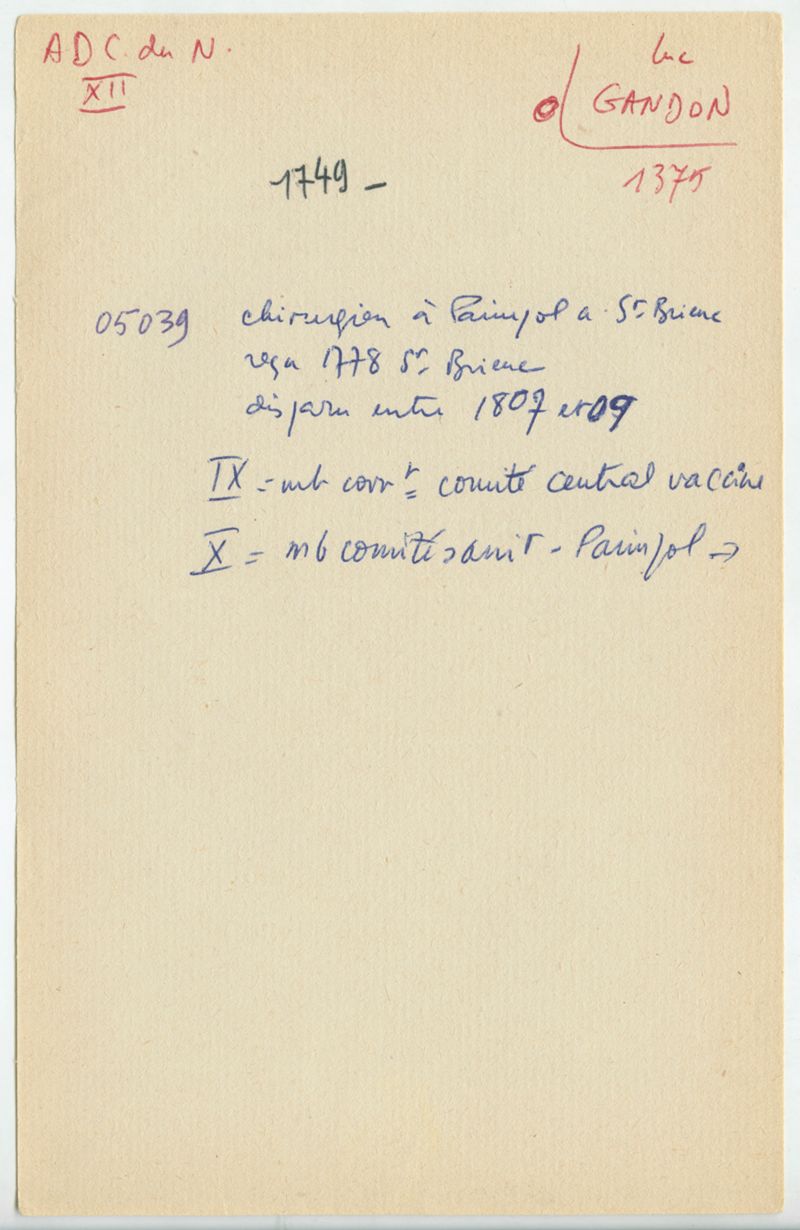 ADC. du N.
XII
Luc
GANDON
1375
1749 –
05039 chirurgien à Paimpol a St Brieuc
reçu 1778 St Brieuc
disparu entre 1807 et 09
IX = mb corrt = comité central vaccine
X = mb comité sanitr - Paimpol →